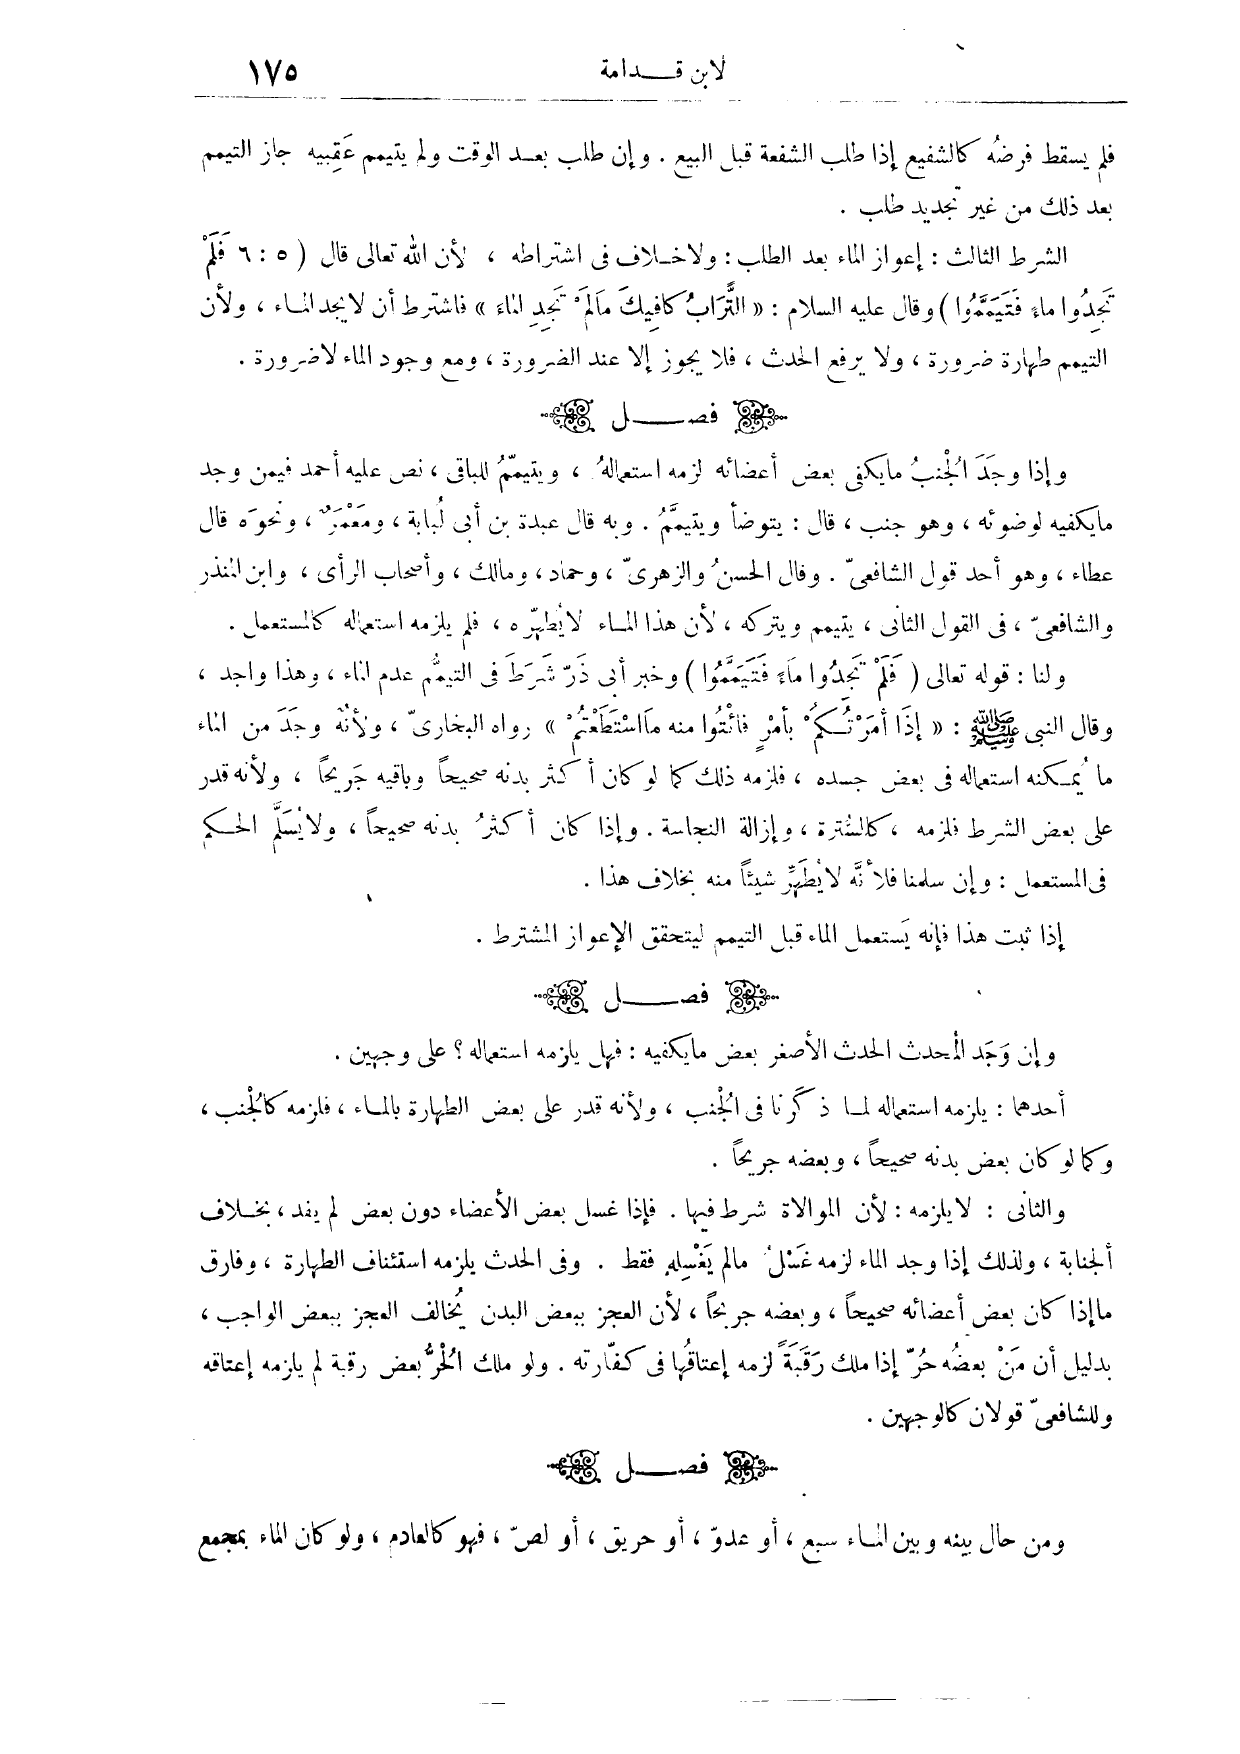 لابن قدامة ١٧٥
فلم يسقط فرضُه كالشفيع إذا طلب الشفعة قبل البيع . وإن طلب بعد الوقت ولم يتيمم عَقِبيه جاز التيمم
بعد ذلك من غير تجديد طلب .
الشرط الثالث : إعواز الماء بعد الطلب : ولاخلاف فى اشتراطه ، لأن الله تعالى قال ( ٥ : ٦ فَلَمْ
تَجِدُوا ماءً فَتَيَمَّمُوا ) وقال عليه السلام : « التُّرَابُ كافِيكَ مَالَمْ تَجِدِ المَاءَ » فاشترط أن لايجد الماء ، ولأن
التيمم طهارة ضرورة ، ولا يرفع الحدث ، فلا يجوز إلا عند الضرورة ، ومع وجود الماء لاضرورة .
فصل
وإذا وجَدَ الُجْنبُ مايكفى بعض أعضائه لزمه استعمالهُ ، ويتيمّمُ للباقى ، نص عليه أحمد فيمن وجد
مايكفيه لوضوئه ، وهو جنب ، قال : يتوضأ ويتيمَّمُ . وبه قال عبدة بن أبى لُبابة ، ومَعْمَرٌ ، ونحوَه قال
عطاء ، وهو أحد قول الشافعىّ . وقال الحسنُ والزهرىّ ، وحماد ، ومالك ، وأصحاب الرأى ، وابن المنذر
والشافعىّ ، فى القول الثانى ، يتيمم ويتركه ، لأن هذا الماء لايُطهرّه ، فلم يلزمه استعماله كالمستعمل .
ولنا : قوله تعالى ( فَلَمْ تَجِدُوا مَاءً فَتَيَمَّمُوا ) وخبر أبى ذَرّ شَرَطَ فى التيمُّم عدم الماء ، وهذا واجد ،
وقال النبى ﷺ : « إذَا أمَرْتُكمُ بأمْرٍ فائْتُوا منه مااسْتَطَعْتُمْ » رواه البخارىّ ، ولأنه وجَدَ من الماء
ما يُمكنه استعماله فى بعض جسده ، فلزمه ذلك كما لو كان أكثر بدنه صحيحاً وباقيه جَريحاً ، ولأنه قدر
على بعض الشرط فلزمه ، كالسُّترة ، وإزالة النجاسة . وإذا كان أكثرُ بدنه صحيحاً ، ولايُسَلَّم الحكم
فى المستعمل : وإن سلمنا فلأنَّه لايُطَهِّر شيئاً منه بخلاف هذا .
إذا ثبت هذا فإنه يَستعمل الماء قبل التيمم ليتحقق الإعواز المشترط .
فصل
وإن وَجَد المُحدث الحدث الأصغر بعض مايكفيه : فهل يلزمه استعماله ؟ على وجهين .
أحدهما : يلزمه استعماله لما ذكَرنا فى الُجْنب ، ولأنه قدر على بعض الطهارة بالماء ، فلزمه كالُجنب ،
وكما لو كان بعض بدنه صحيحاً ، وبعضه جريحاً .
والثانى : لايلزمه : لأن الموالاة شرط فيها . فإذا غسل بعض الأعضاء دون بعض لم يفد ، بخلاف
الجنابة ، ولذلك إذا وجد الماء لزمه غَسْلُ مالم يَغْسِله فقط . وفى الحدث يلزمه استئناف الطهارة ، وفارق
ماإذا كان بعض أعضائه صحيحاً ، وبعضه جريحاً ، لأن العجز ببعض البدن يُخالف العجز ببعض الواجب ،
بدليل أن مَنْ بعضُه حُرّ إذا ملك رَقَبَةً لزمه إعتاقُها فى كفّارته . ولو ملك الُحْرُّ بعض رقبة لم يلزمه إعتاقه
وللشافعىّ قولان كالوجهين .
فصل
ومن حال بينه وبين الماء سبع ، أو عدوّ ، أو حريق ، أو لصّ ، فهو كالعادم ، ولو كان الماء بمجمع